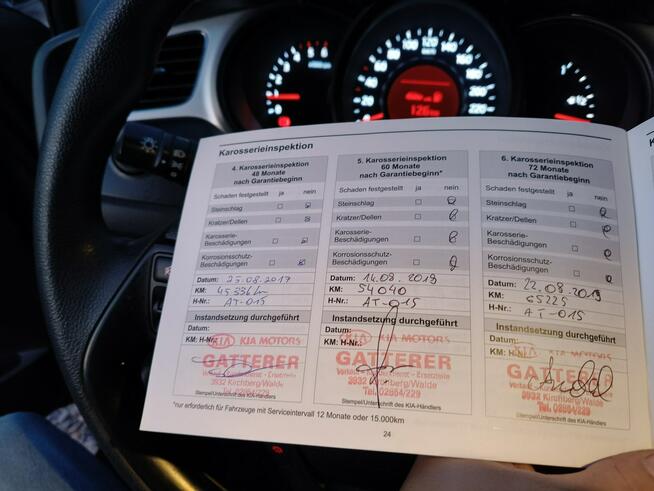 120
126 km
1/2
Karosserieinspektion
4. Karosserieinspektion
48 Monate
nach Garantiebeginn
Schaden festgestellt ja nein
Steinschlag
Kratzer/Dellen
Karosserie-
Beschädigungen
Korrosionsschutz-
Beschädigungen
Datum: 23.08.2017
KM: 45536 km
H-Nr.: AT-015
Instandsetzung durchgeführt
Datum:
KM: H-Nr.:
KIA KIA MOTORS
GATTERER
3932 Kirchberg/Walde
Tel. 02854/229
Stempel/Unterschrift des KIA-Händlers
5. Karosserieinspektion
60 Monate
nach Garantiebeginn*
Schaden festgestellt ja nein
Steinschlag
Kratzer/Dellen
Karosserie-
Beschädigungen
Korrosionsschutz-
Beschädigungen
Datum: 14.08.2018
KM: 54040
H-Nr.: AT-015
Instandsetzung durchgeführt
Datum:
KM: H-Nr.:
KIA KIA MOTORS
GATTERER
3932 Kirchberg/Walde
Tel. 02854/229
Stempel/Unterschrift des KIA-Händlers
6. Karosserieinspektion
72 Monate
nach Garantiebeginn
Schaden festgestellt ja nein
Steinschlag
Kratzer/Dellen
Karosserie-
Beschädigungen
Korrosionsschutz-
Beschädigungen
Datum: 22.08.2019
KM: 65225
H-Nr.: AT-015
Instandsetzung durchgeführt
Datum:
KIA MOTORS
GATTERER
3932 Kirchberg/Walde
Tel. 02854/229
Stempel/Unterschrift des KIA-Händlers
*nur erforderlich für Fahrzeuge mit Serviceintervall 12 Monate oder 15.000km
24